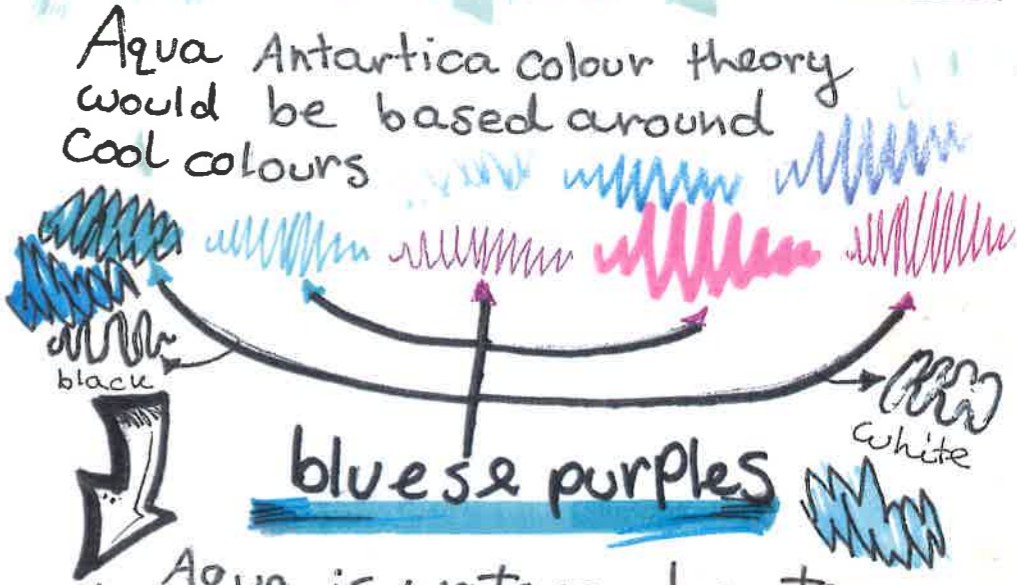 Aqua Antartica colour theory
would be based around
Cool colours
black
white
blues & purples
Aqua is